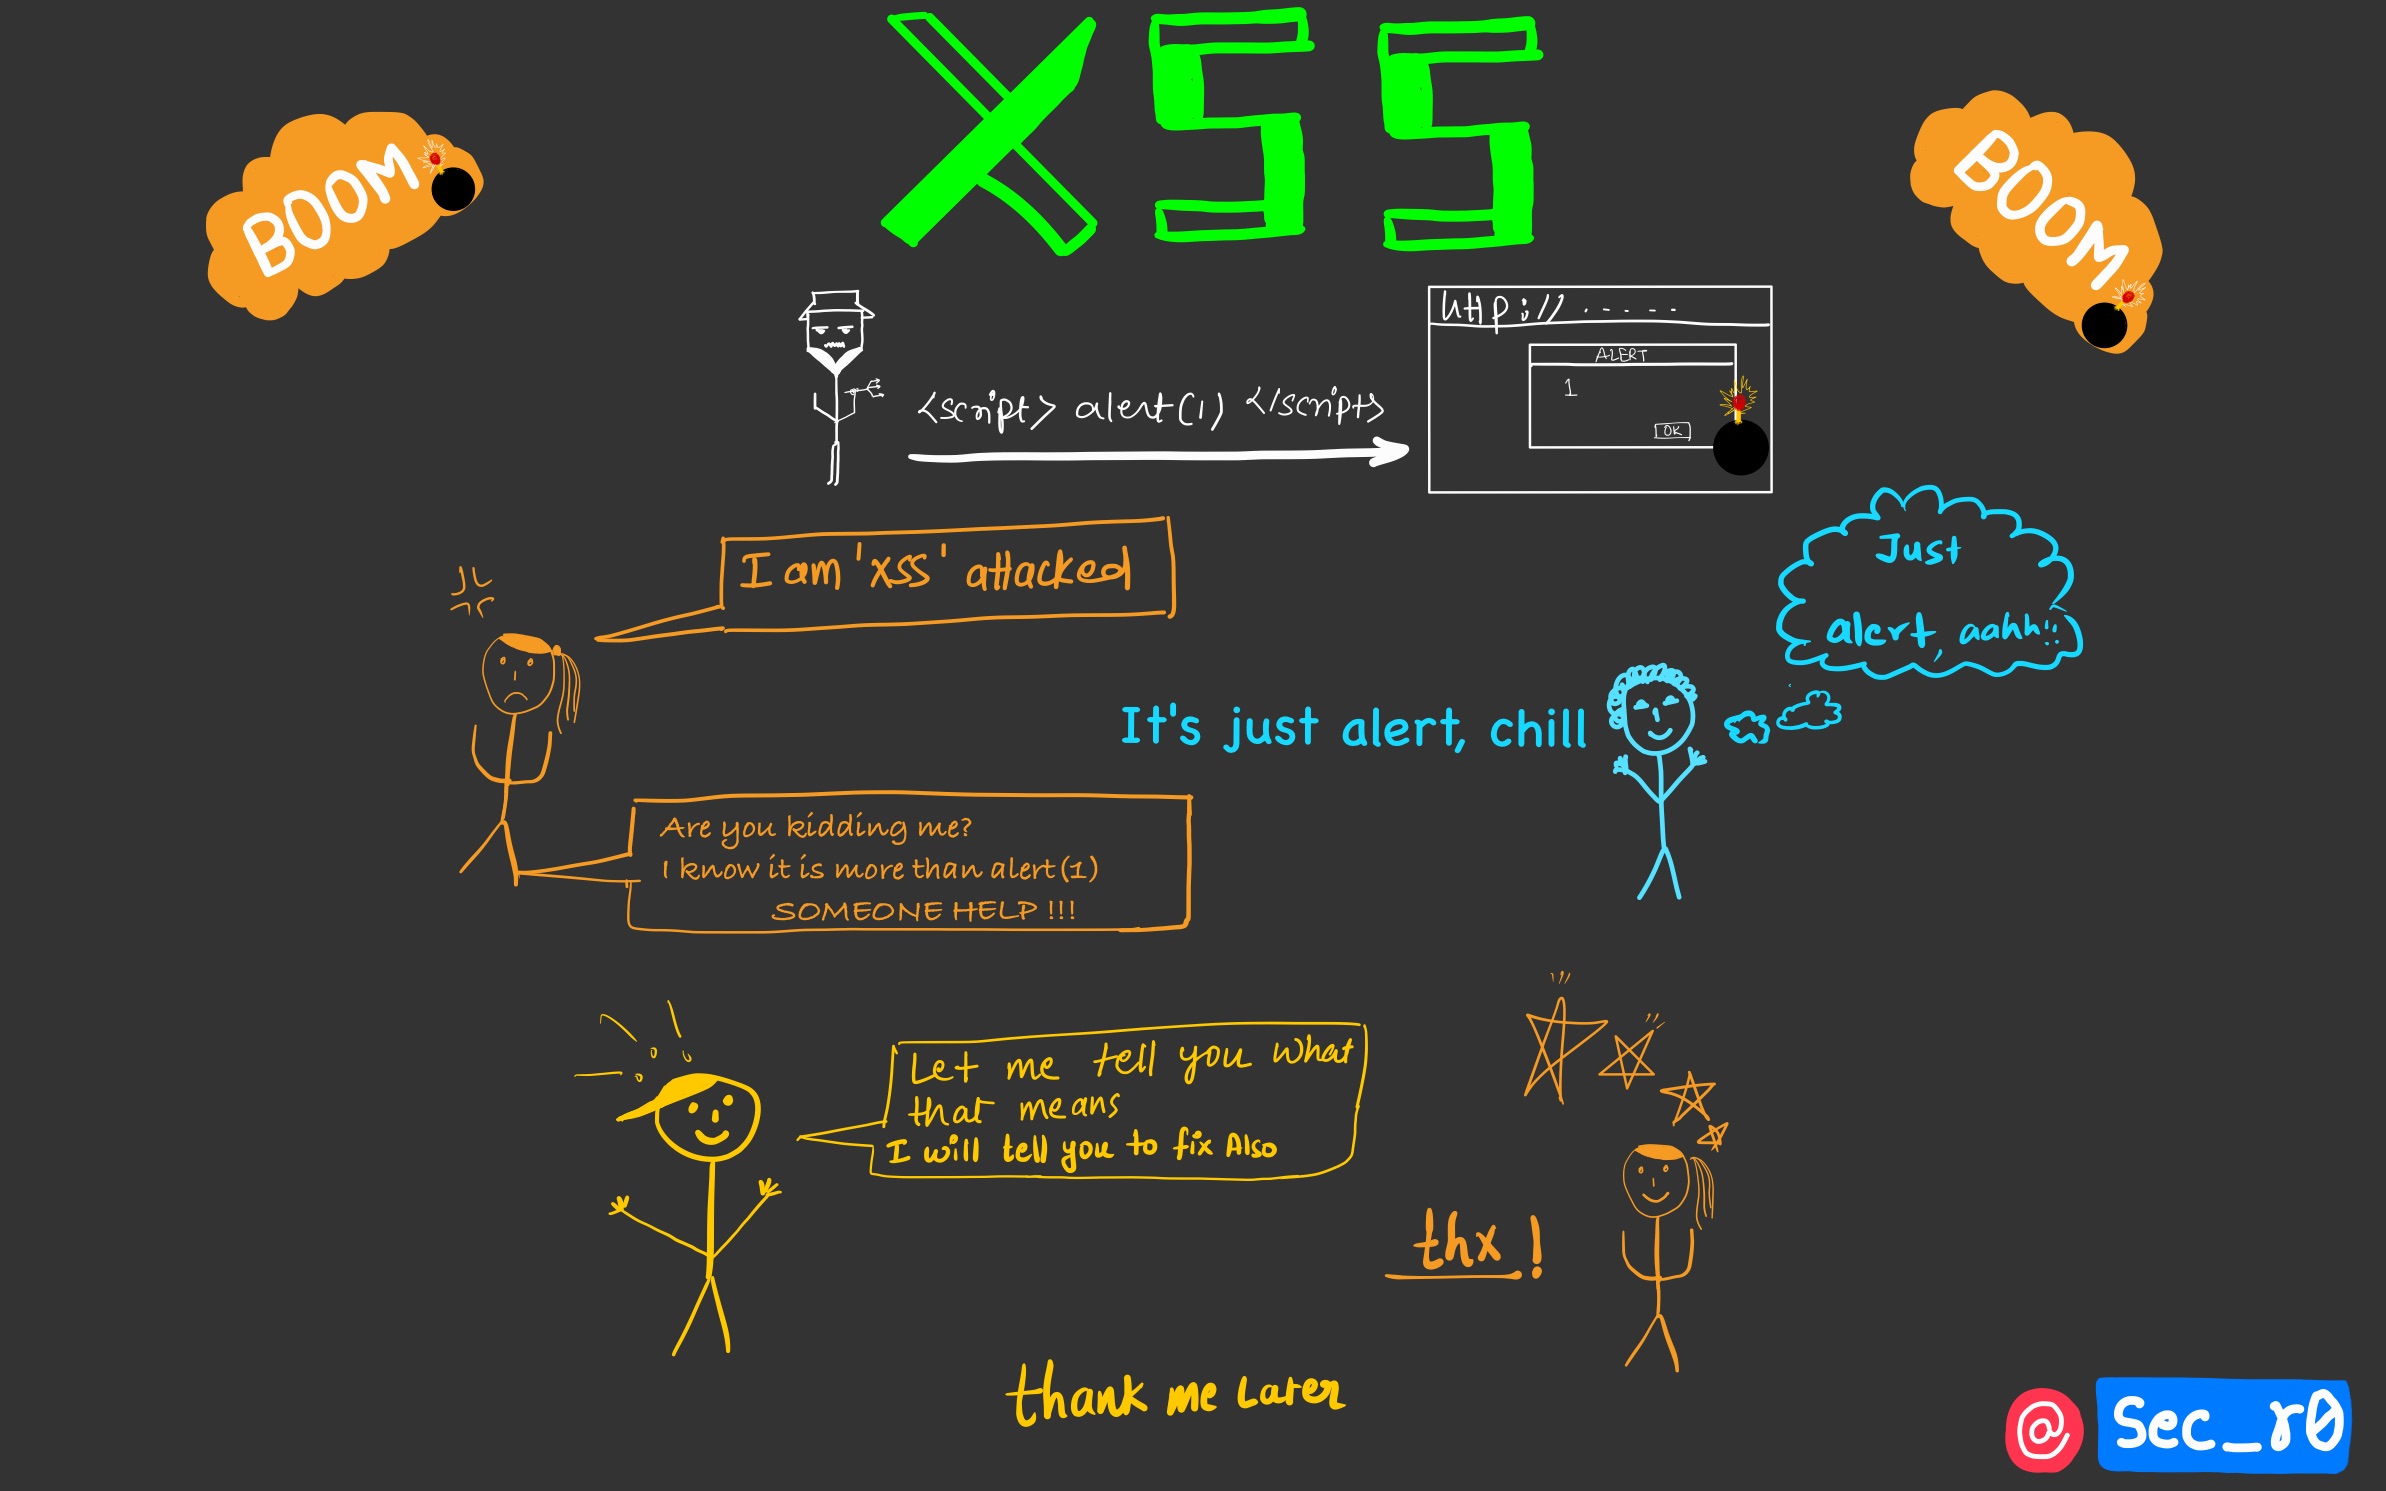 XSS
BOOM
BOOM
http://.....
ALERT
1
OK
<script> alert(1) </script>
I am 'xss' attacked
Just
alert, aahh!!
It's just alert, chill
Are you kidding me?
I know it is more than alert(1)
SOMEONE HELP !!!
Let me tell you what
that means
I will tell you to fix Also
thx !
thank me Later
@ Sec_r0